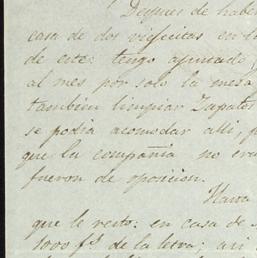 Despues de haber
casa de dos viejecitas en
de este: tengo ajustado,
al mes por solo la mesa
tambien limpiar Zapatos
se podia acomodar alli, p
que la compañia no era
fueron de oposicion.
Harra
que le resto: en casa de
1000 f.s de la letra: asi